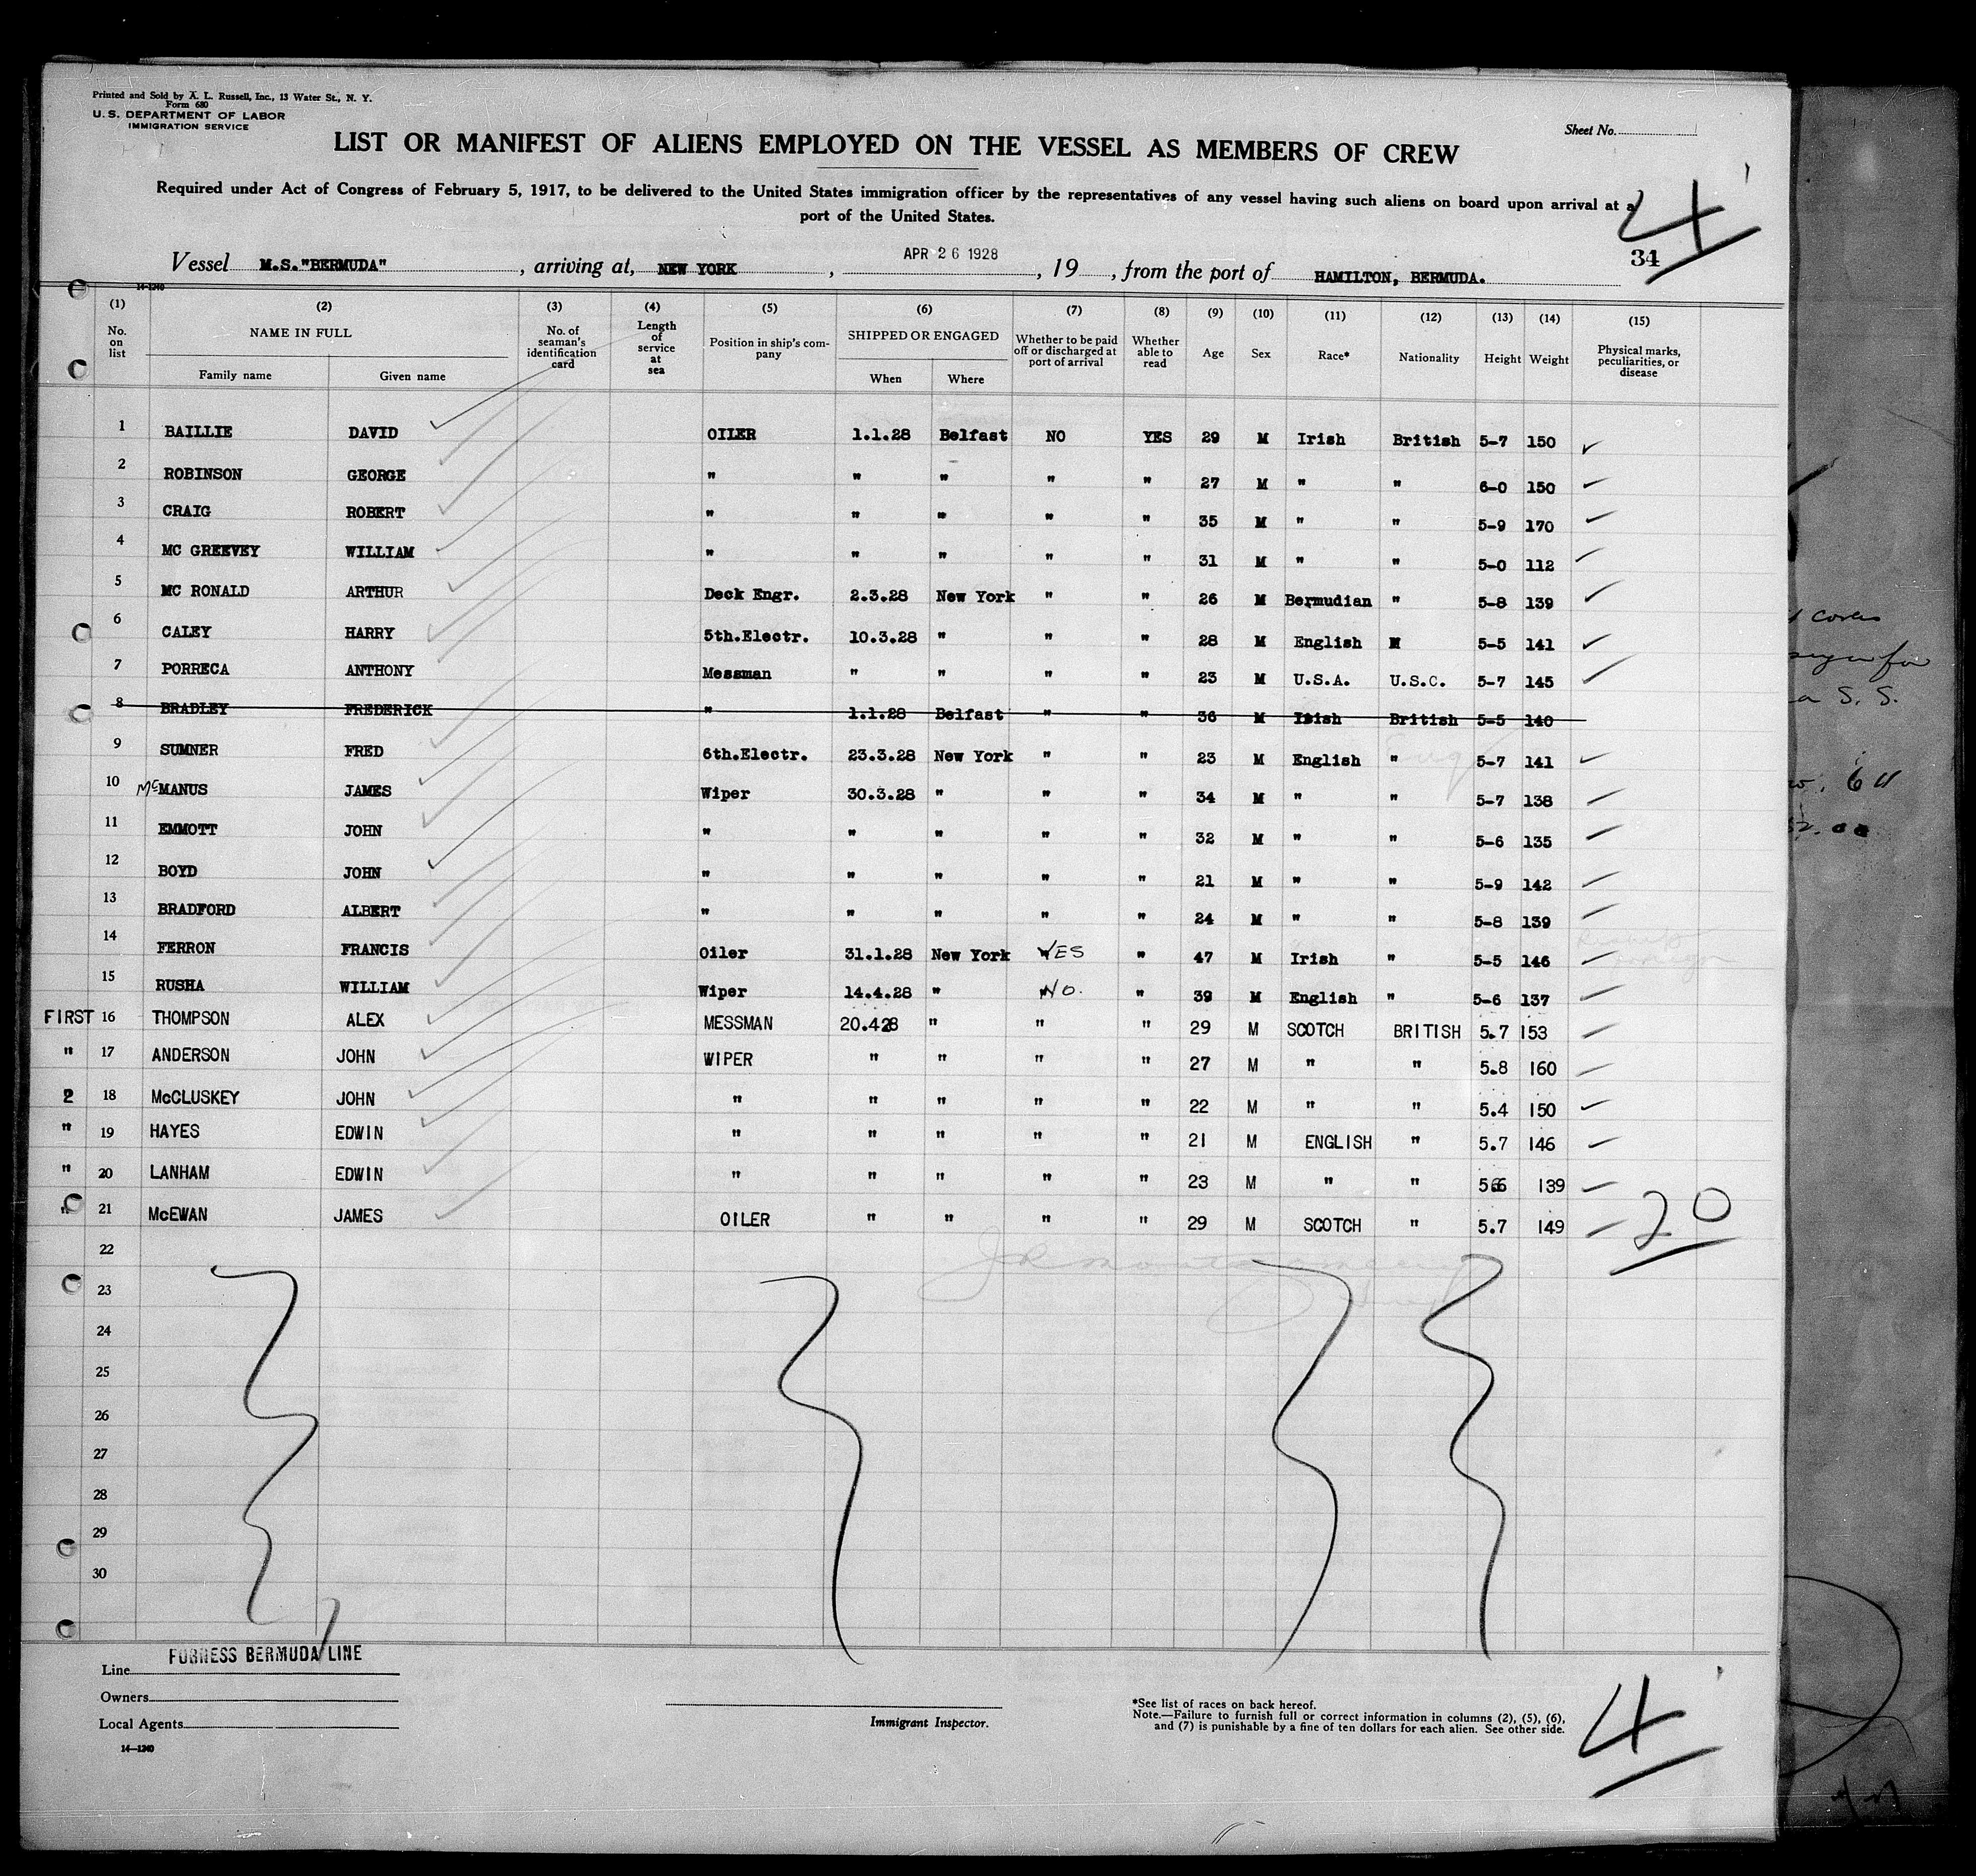 Printed and Sold by A. L. Russell, Inc., 13 Water St., N. Y.
Form 680
U. S. DEPARTMENT OF LABOR
IMMIGRATION SERVICE
Sheet No.
LIST OR MANIFEST OF ALIENS EMPLOYED ON THE VESSEL AS MEMBERS OF CREW
Required under Act of Congress of February 5, 1917, to be delivered to the United States immigration officer by the representatives of any vessel having such aliens on board upon arrival at a
port of the United States.
4
34
Vessel M.S."BERMUDA", arriving at, NEW YORK, APR 26 1928, 19, from the port of HAMILTON, BERMUDA.
14-1240
(1) (2) (3) (4) (5) (6) (7) (8) (9) (10) (11) (12) (13) (14) (15)
No. on list NAME IN FULL Family name Given name No. of seaman's identification card Length of service at sea Position in ship's company SHIPPED OR ENGAGED When Where Whether to be paid off or discharged at port of arrival Whether able to read Age Sex Race* Nationality Height Weight Physical marks, peculiarities, or disease
1 BAILLIE DAVID OILER 1.1.28 Belfast NO YES 29 M Irish British 5-7 150
2 ROBINSON GEORGE " " " " " 27 M " " 6-0 150
3 CRAIG ROBERT " " " " " 35 M " " 5-9 170
4 MC GREEVEY WILLIAM " " " " " 31 M " " 5-0 112
5 MC RONALD ARTHUR Deck Engr. 2.3.28 New York " " 26 M Bermudian " 5-8 139
6 CALEY HARRY 5th.Electr. 10.3.28 " " " 28 M English " 5-5 141
7 PORRECA ANTHONY Messman " " " " 23 M U.S.A. U.S.C. 5-7 145
8 BRADLEY FREDERICK " 1.1.28 Belfast " " 36 M Irish British 5-5 140
9 SUMNER FRED 6th.Electr. 23.3.28 New York " " 23 M English " 5-7 141
10 McMANUS JAMES Wiper 30.3.28 " " " 34 M " " 5-7 138
11 EMMOTT JOHN " " " " " 32 M " " 5-6 135
12 BOYD JOHN " " " " " 21 M " " 5-9 142
13 BRADFORD ALBERT " " " " " 24 M " " 5-8 139
14 FERRON FRANCIS Oiler 31.1.28 New York YES " 47 M Irish " 5-5 146
15 RUSHA WILLIAM Wiper 14.4.28 " NO. " 39 M English " 5-6 137
FIRST 16 THOMPSON ALEX MESSMAN 20.428 " " " 29 M SCOTCH BRITISH 5.7 153
" 17 ANDERSON JOHN WIPER " " " " 27 M " " 5.8 160
2 18 McCLUSKEY JOHN " " " " " 22 M " " 5.4 150
" 19 HAYES EDWIN " " " " " 21 M ENGLISH " 5.7 146
" 20 LANHAM EDWIN " " " " " 23 M " " 566 139
" 21 McEWAN JAMES OILER " " " " 29 M SCOTCH " 5.7 149
20
22
23
24
25
26
27
28
29
30
Line FURNESS BERMUDA LINE
Owners
Local Agents
14—1240
Immigrant Inspector.
*See list of races on back hereof.
Note.—Failure to furnish full or correct information in columns (2), (5), (6),
and (7) is punishable by a fine of ten dollars for each alien. See other side.
4